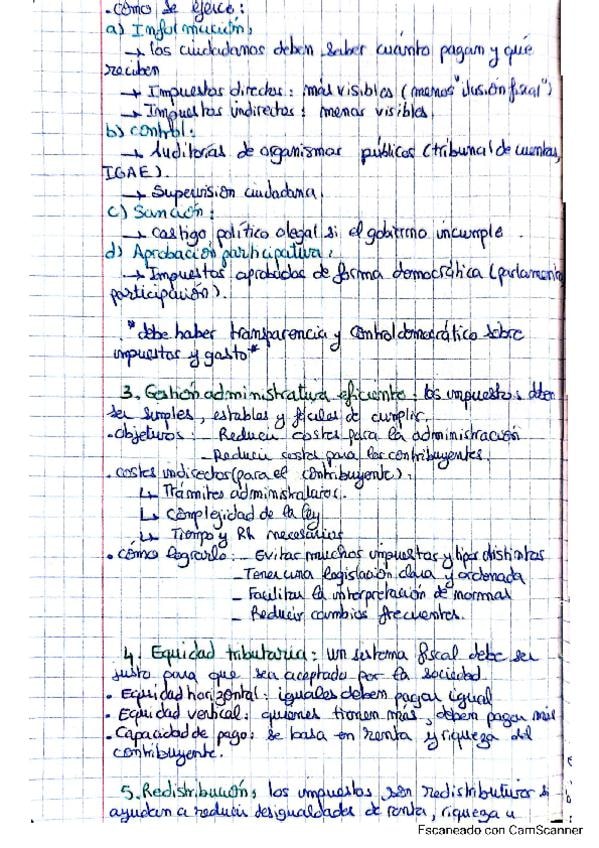 · cómo se ejerce:
a) Información:
→ los ciudadanos deben saber cuánto pagan y qué
reciben
→ Impuestos directos: más visibles (menos "ilusión fiscal")
→ Impuestos indirectos: menos visibles.
b) control:
→ Auditorías de organismos públicos (tribunal de cuentas,
IGAE).
→ Supervisión ciudadana.
c) Sanción:
→ castigo político o legal si el gobierno incumple.
d) Aprobación participativa:
→ Impuestos aprobados de forma democrática (parlamento
participación).
*debe haber transparencia y control democrático sobre
impuestos y gasto*
3. Gestión administrativa eficiente: los impuestos deben
ser simples, estables y fáciles de cumplir.
· Objetivos: - Reducir costes para la administración
- Reducir costes para los contribuyentes.
· costes indirectos (para el contribuyente):
↳ Trámites administrativos.
↳ Complejidad de la ley
↳ Tiempo y RH necesarios
· cómo lograrlo: - Evitar muchos impuestos y tipos distintos
- Tener una legislación clara y ordenada
- Facilitar la interpretación de normas
- Reducir cambios frecuentes.
4. Equidad tributaria: un sistema fiscal debe ser
justo para que sea aceptado por la sociedad.
· Equidad horizontal: iguales deben pagar igual
· Equidad vertical: quienes tienen más, deben pagar más
· Capacidad de pago: se basa en renta y riqueza del
contribuyente.
5. Redistribución: los impuestos son redistributivos si
ayudan a reducir desigualdades de renta, riqueza u
Escaneado con CamScanner